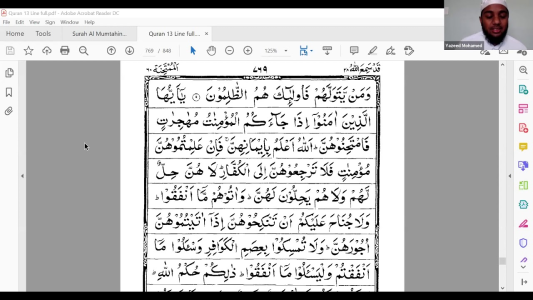 Quran 13 Line full.pdf - Adobe Acrobat Reader DC
File Edit View Sign Window Help
Home Tools Surah Al Mumtahin... Quran 13 Line full... ×
769 / 848 125%
Fazeed Mohamed
الممتحنة ٦٠ ٧٦٩ قد سمع الله ٢٨
وَمَنْ يَّتَوَلَّهُمْ فَاُولٰٓئِكَ هُمُ الظّٰلِمُوْنَ ۝ يٰٓاَيُّهَا
الَّذِيْنَ اٰمَنُوْٓا اِذَا جَآءَكُمُ الْمُؤْمِنٰتُ مُهٰجِرٰتٍ
فَامْتَحِنُوْهُنَّ ؕ اَللّٰهُ اَعْلَمُ بِاِيْمَانِهِنَّ ۚ فَاِنْ عَلِمْتُمُوْهُنَّ
مُؤْمِنٰتٍ فَلَا تَرْجِعُوْهُنَّ اِلَى الْكُفَّارِ ؕ لَا هُنَّ حِلٌّ
لَّهُمْ وَلَا هُمْ يَحِلُّوْنَ لَهُنَّ ؕ وَاٰتُوْهُمْ مَّآ اَنْفَقُوْا ؕ
وَلَا جُنَاحَ عَلَيْكُمْ اَنْ تَنْكِحُوْهُنَّ اِذَآ اٰتَيْتُمُوْهُنَّ
اُجُوْرَهُنَّ ؕ وَلَا تُمْسِكُوْا بِعِصَمِ الْكَوَافِرِ وَسْـَٔلُوْا مَآ
اَنْفَقْتُمْ وَلْيَسْـَٔلُوْا مَآ اَنْفَقُوْا ؕ ذٰلِكُمْ حُكْمُ اللّٰهِ ؕ